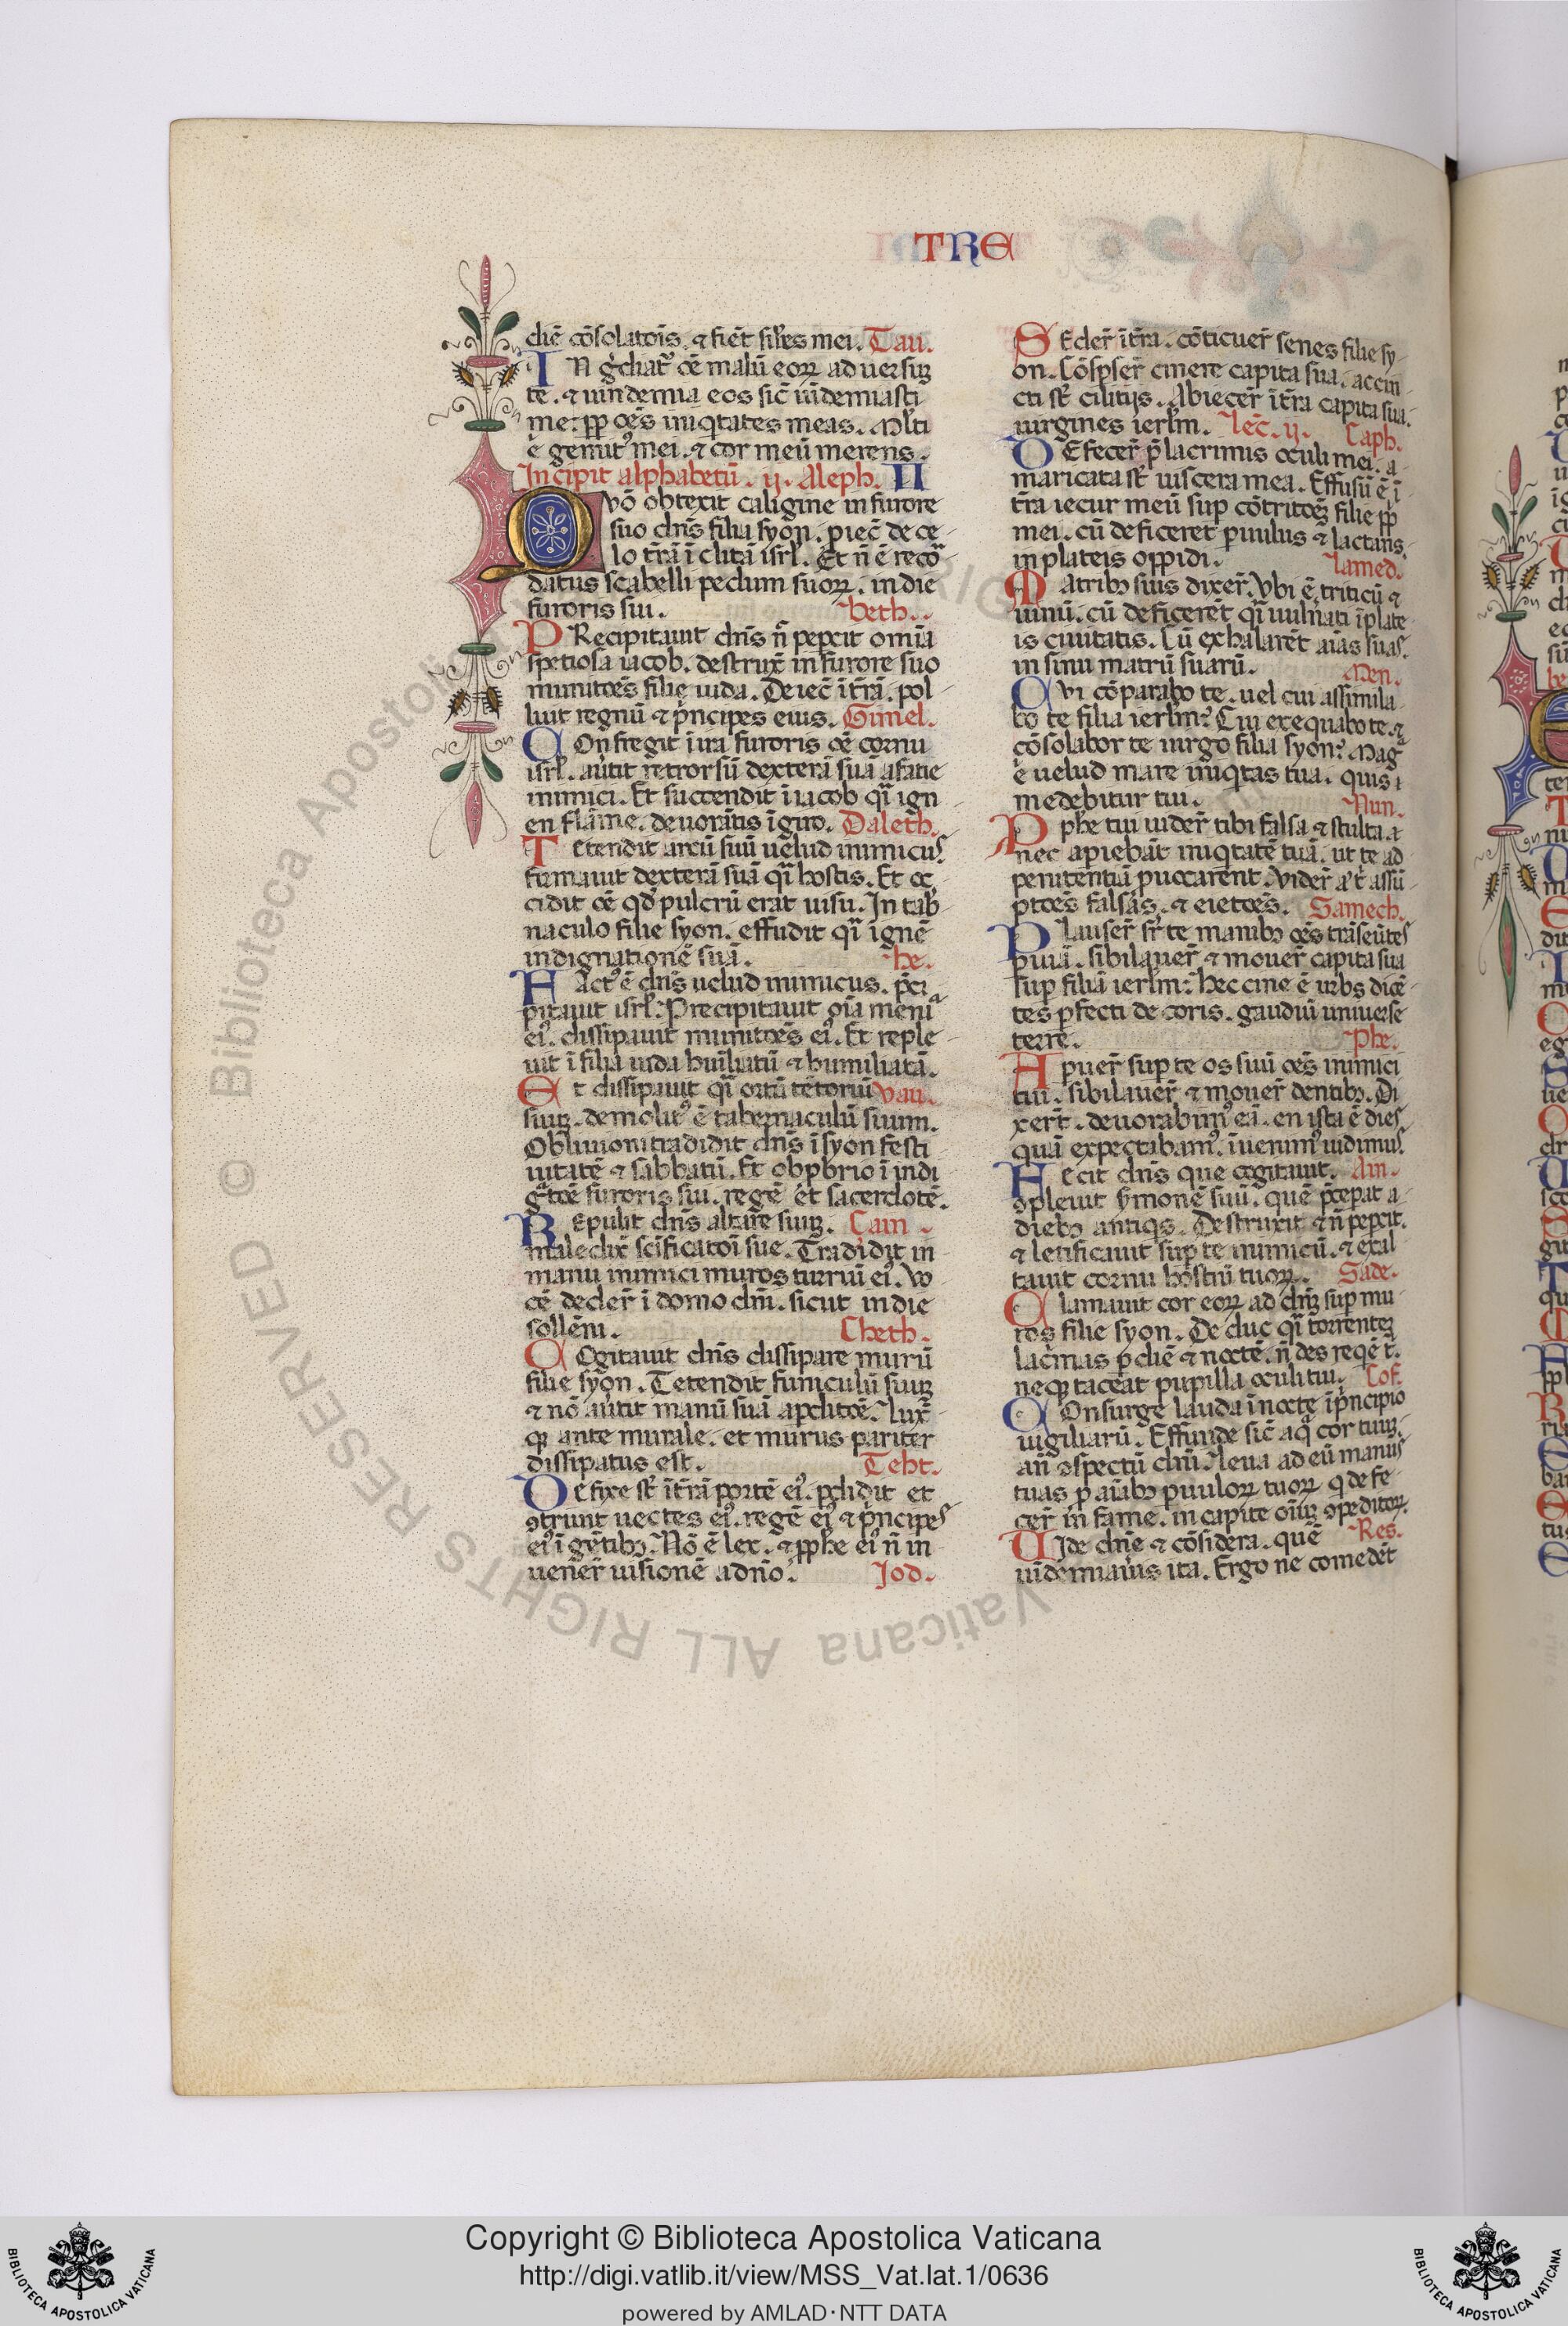 TRE
diē cōsolatoīs. ⁊ fiēt siłes mei. Tau.
IN gͥdiatꝰ oē malū eoꝝ aduersuꝫ
te. ⁊ uindemia eos sic̄ uīdemiasti
me: ꝓp oēs iniqͥtates meas. Mlti
ē gemitꝰ mei. ⁊ cor meū merens.
Incipit alphabetū. ij. Aleph. II
Qvō obtexit caligine in furore
suo dn̄s filia syon. ꝓiec̄ de ce
lo tr̄ā īclitā isrl̄. Et n̄ ē recoͬ
datus scabelli pedum suoꝝ. in die
furoris sui. beth.
PRecipitauit dn̄s n̄ peꝑcit omīa
spetiosa iacob. destrux̄ in furore suo
munitoēs filie iuda. Deiec̄ ītr̄ā. pol
luit regnū ⁊ pͥncipes eius. Gimel.
COnfregit īira furoris oē cornu
isrl̄. autit retrorsū dexterā suā afatie
inimici. Et succendit īiacob qī ign
en flāme. deuorātis īgiro. Daleth.
Tetendit arcū suū uelud inimicus.
firmauit dexterā suā qī hostis. Et oc
cidit oē qd̄ pulcrū erat uisu. In tab
naculo filie syon. effudit qī ignē
indignationē suā. he.
FActꝰ ē dn̄s uelud inimicus. p̄ci
pitauit isrl̄. Precipitauit oīa meniᵃ
eiꝰ. dissipauit munitoēs eiꝰ. Et reple
uit ī filia iuda huīliatū ⁊ humiliatā.
Et dissipauit qī ortū tētoriū vau.
suuꝫ. demolitꝰ ē tabernaculū suum.
Obliuioni tradidit dn̄s ī syon festi
uitatē ⁊ sabbatū. Et obꝓbrio ī indi
gͣtoē furoris sui. regē et sacerdotē.
REpulit dn̄s altare suuꝫ. Cain.
maledix̄ scīficatoī sue. Tradidit in
manu inimici muros turriū eiꝰ. Vo
cē deder̄ ī domo dn̄i. sicut in die
sollēni. Cheth.
COgitauit dn̄s dissipare murū
filie syon. Tetendit funiculū suuꝫ
⁊ nō autit manū suā aꝑditoē. Lux̄
qꝫ ante murale. et murus pariter
dissipatus est. Teht.
DEfixe st̄ ītr̄ā porte eiꝰ. ꝑdidit et
ꝯtriuit uectes eiꝰ. regē eiꝰ ⁊ pͥncipes
eiꝰ ī gētibꝫ. Nō ē lex. ⁊ ꝓphe eiꝰ n̄ in
uener̄ uisionē adn̄o. Jod.
SEder̄ ītr̄a. cōticuer̄ senes filie sy
on. Cōsꝑser̄ cinere capita sua. accin
cti st̄ cilitijs. Abiecer̄ ītr̄a capita sua
uirgines ierl̄m. Lec̄. ij. Caph.
DEfecer̄ p̄ lacrimis oculi mei. ⹁
maricata st̄ uiscera mea. Effusū ē ī
tr̄a iecur meū suꝑ cōtritoēꝫ filie ꝓp
mei. cū deficeret ꝑuulus ⁊ lactans
in plateis oppidi. Lamed.
MAtribꝫ suis dixer̄. Vbi ē triticū ⁊
uinū. cū deficeret qī uulnati īplate
is ciuitatis. Cū exhalarēt aīas suas.
in sinu matrū suarū. Men.
CVi cōparabo te. uel cui assimila
bo te filia ierl̄m? Cui exequabo te. ⁊
cōsolabor te uirgo filia syon? Magᵃ
ē uelud mare iniqͥtas tua. quis
medebitur tui. Nun.
PꝒphe tui uider̄ tibi falsa ⁊ stulta.
nec aꝑiebāt iniqͥtatē tuā. ut te ad
penitentiā ꝓuocarent. Vider̄ aͭ t̄ assū
ptoēs falsas. ⁊ eietoēs. Samech.
PLauser̄ sr̄ te manibꝫ oēs trāseūtes
ꝑuiā. sibilauer̄ ⁊ mouer̄ capita sua
suꝑ filiā ierl̄m: hec cine ē urbs dicē
tes ꝑfecti decoris. gaudiū uniuerse
terre. Phe.
APuer̄ suꝑ te os suū oēs inimici
tui. sibilauer̄ ⁊ mouer̄ dentibꝫ. Di
xert̄. deuorabimꝰ eā. en ista ē dies
quā expectabamꝰ. īuenimꝰ uidimus.
FEcit dn̄s que cogitauit. Ain.
ꝯpleuit ẜmonē suū. quē p̄ceꝑat a
diebꝫ antiqͥs. Destruxit ⁊ n̄ peꝑcit.
⁊ letificauit suꝑ te inimicū. ⁊ exal
tauit cornu hostiū tuoꝝ. Sade.
CLamauit cor eoꝝ ad dn̄ꝫ suꝑ mu
ros filie syon. Deduc qī torrenteꝫ
lacͥmas ꝑ diē ⁊ noctē. n̄ des reqͥē t̄.
neqꝫ taceat pupilla oculi tui. Cof.
COnsurge lauda īnocte īpͥncipio
uigiliarū. Effunde sic̄ aqͣ cor tuuꝫ.
an̄ ꝯspectū dn̄i. Leua ad eū manus
tuas ꝑ aīabꝫ ꝑuuloꝝ tuoꝝ. q defe
cer̄ in fame. in capite oīuꝫ ꝯpeditoꝝ.
VIde dn̄e ⁊ cōsidera. quē Res.
uīdemiaūis ita. Ergo ne comedēt
Copyright © Biblioteca Apostolica Vaticana
http://digi.vatlib.it/view/MSS_Vat.lat.1/0636
powered by AMLAD·NTT DATA
BIBLIOTECA APOSTOLICA VATICANA
BIBLIOTECA APOSTOLICA VATICANA
© Biblioteca Apostolica Vaticana ALL RIGHTS RESERVED